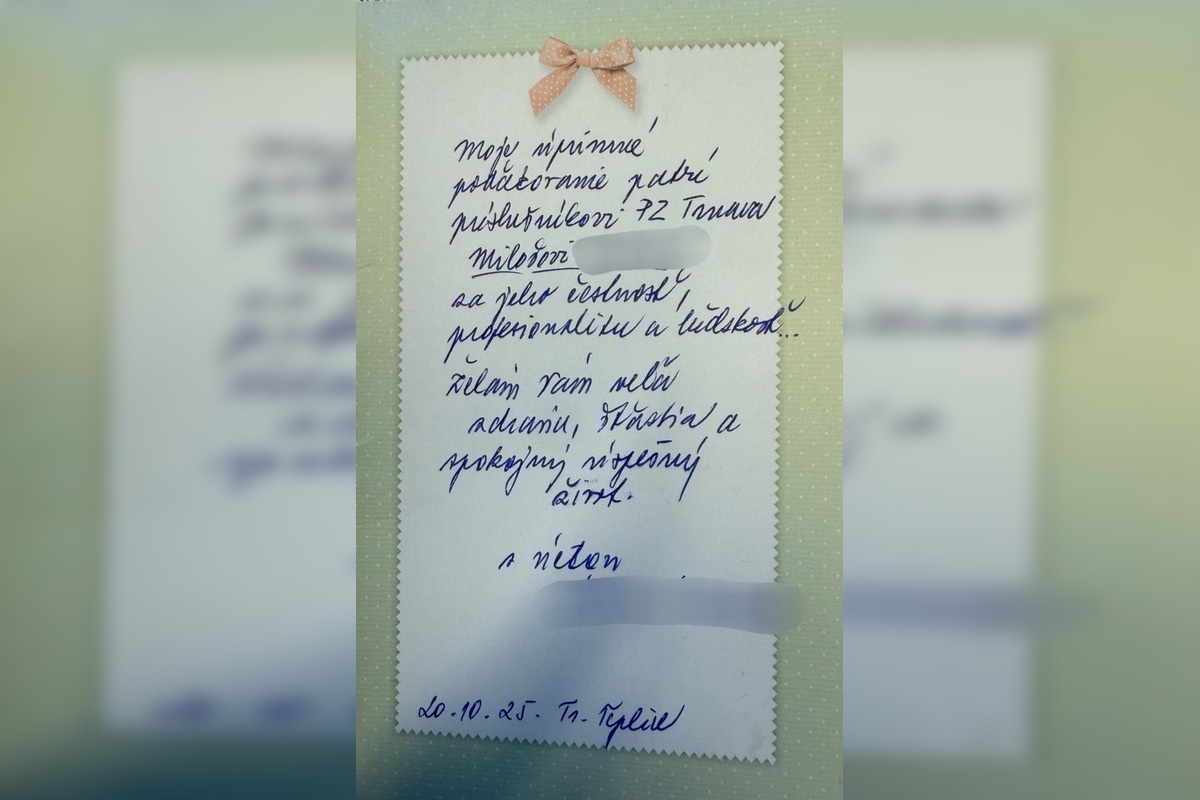 Moje úprimné
poďakovanie patrí
príslušníkovi PZ Trnava
Milošovi
za jeho čestnosť,
profesionalitu a ľudskosť...
Želám Vám veľa
zdravia, šťastia a
spokojný úspešný
život.
s úctou
20.10.25. Tr. Teplice